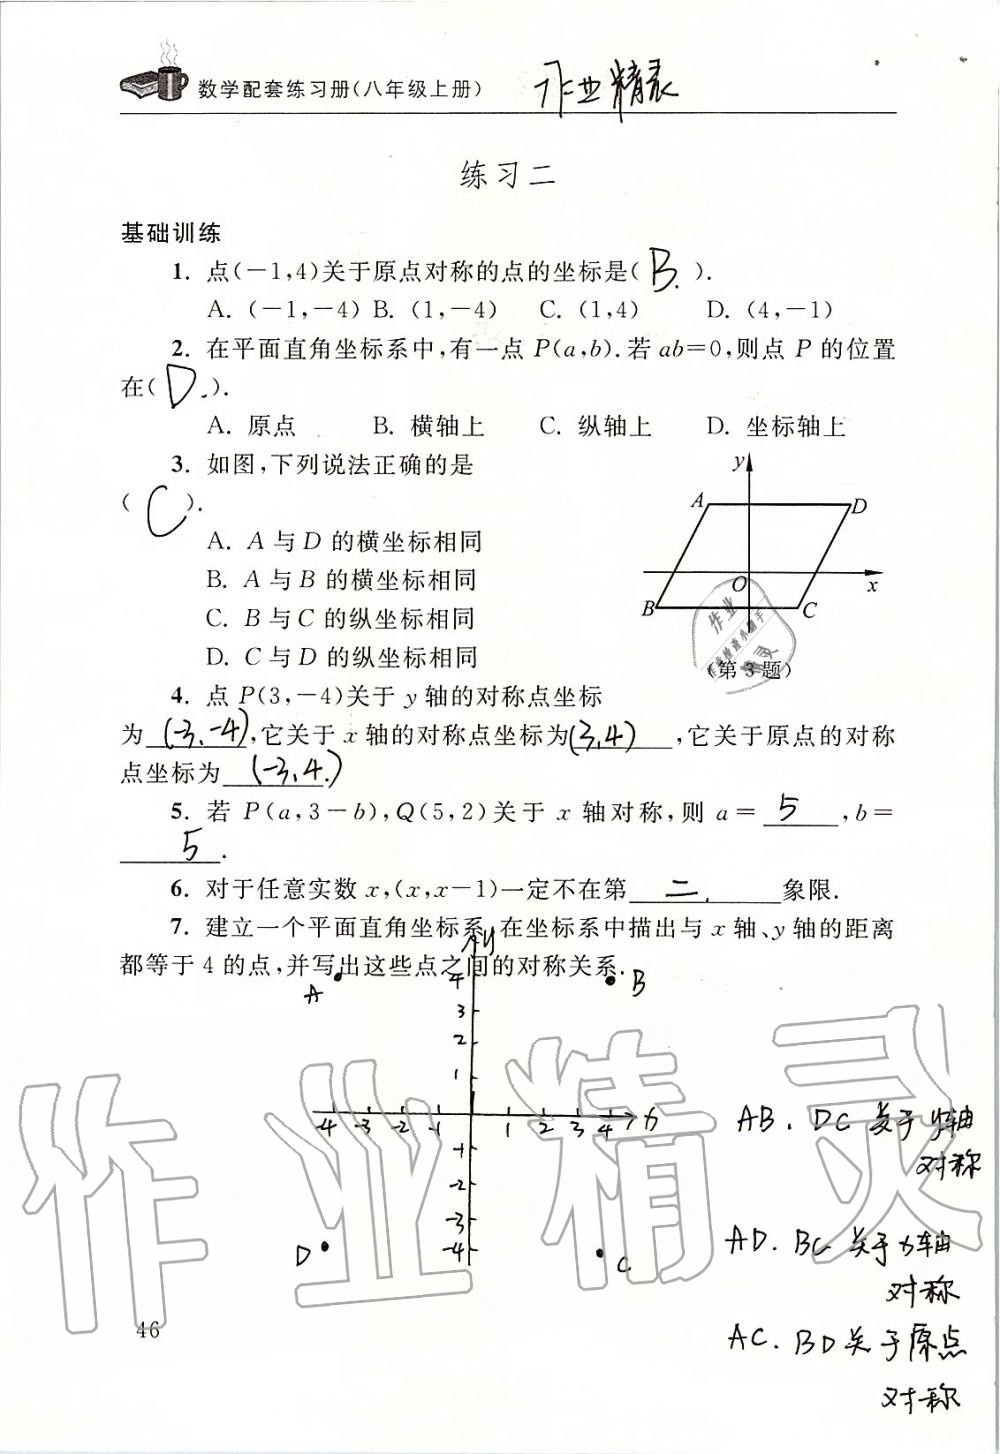 数学配套练习册(八年级上册)
作业精灵
练习二
基础训练
1. 点(-1,4)关于原点对称的点的坐标是( B ).
A. (-1,-4) B. (1,-4) C. (1,4) D. (4,-1)
2. 在平面直角坐标系中,有一点 P(a,b).若 ab=0,则点 P 的位置
在( D ).
A. 原点 B. 横轴上 C. 纵轴上 D. 坐标轴上
3. 如图,下列说法正确的是
( C ).
A. A 与 D 的横坐标相同
B. A 与 B 的横坐标相同
C. B 与 C 的纵坐标相同
D. C 与 D 的纵坐标相同
y
A D
O x
B C
(第 3 题)
4. 点 P(3,-4)关于 y 轴的对称点坐标
为 (-3,-4) ,它关于 x 轴的对称点坐标为 (3,4) ,它关于原点的对称
点坐标为 (-3,4)
5. 若 P(a,3-b),Q(5,2)关于 x 轴对称,则 a= 5 ,b=
5 .
6. 对于任意实数 x,(x,x-1)一定不在第 二 象限.
7. 建立一个平面直角坐标系,在坐标系中描出与 x 轴、y 轴的距离
都等于 4 的点,并写出这些点之间的对称关系.
y
A 4 B
3
2
1
-4 -3 -2 -1 1 2 3 4 x
-1
-2
-3
D -4 C
AB. DC 关于 y轴
对称
AD. BC 关于 x轴
对称
AC. BD 关于原点
对称
46
作业精灵